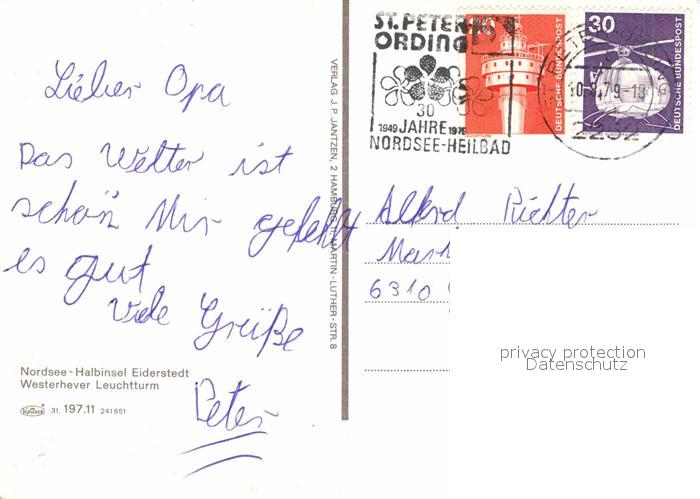 Lieber Opa
Das Wetter ist
schön Mir gefehlt
es gut
Viele Grüße
Peter
Nordsee-Halbinsel Eiderstedt
Westerhever Leuchtturm
Krüger 31. 197.11 241651
VERLAG J. P. JANTZEN, 2 HAMBURG MARTIN-LUTHER-STR. 8
ST. PETER-
ORDING
30
1949 JAHRE 1979
NORDSEE-HEILBAD
10
DEUTSCHE BUNDESPOST
30
DEUTSCHE BUNDESPOST
2252
Alfred Richter
6310
privacy protection
Datenschutz